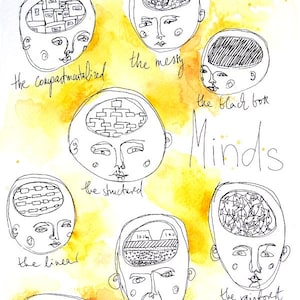 the compartmentalized
the messy
the black box
Minds
the structured
the linear
the